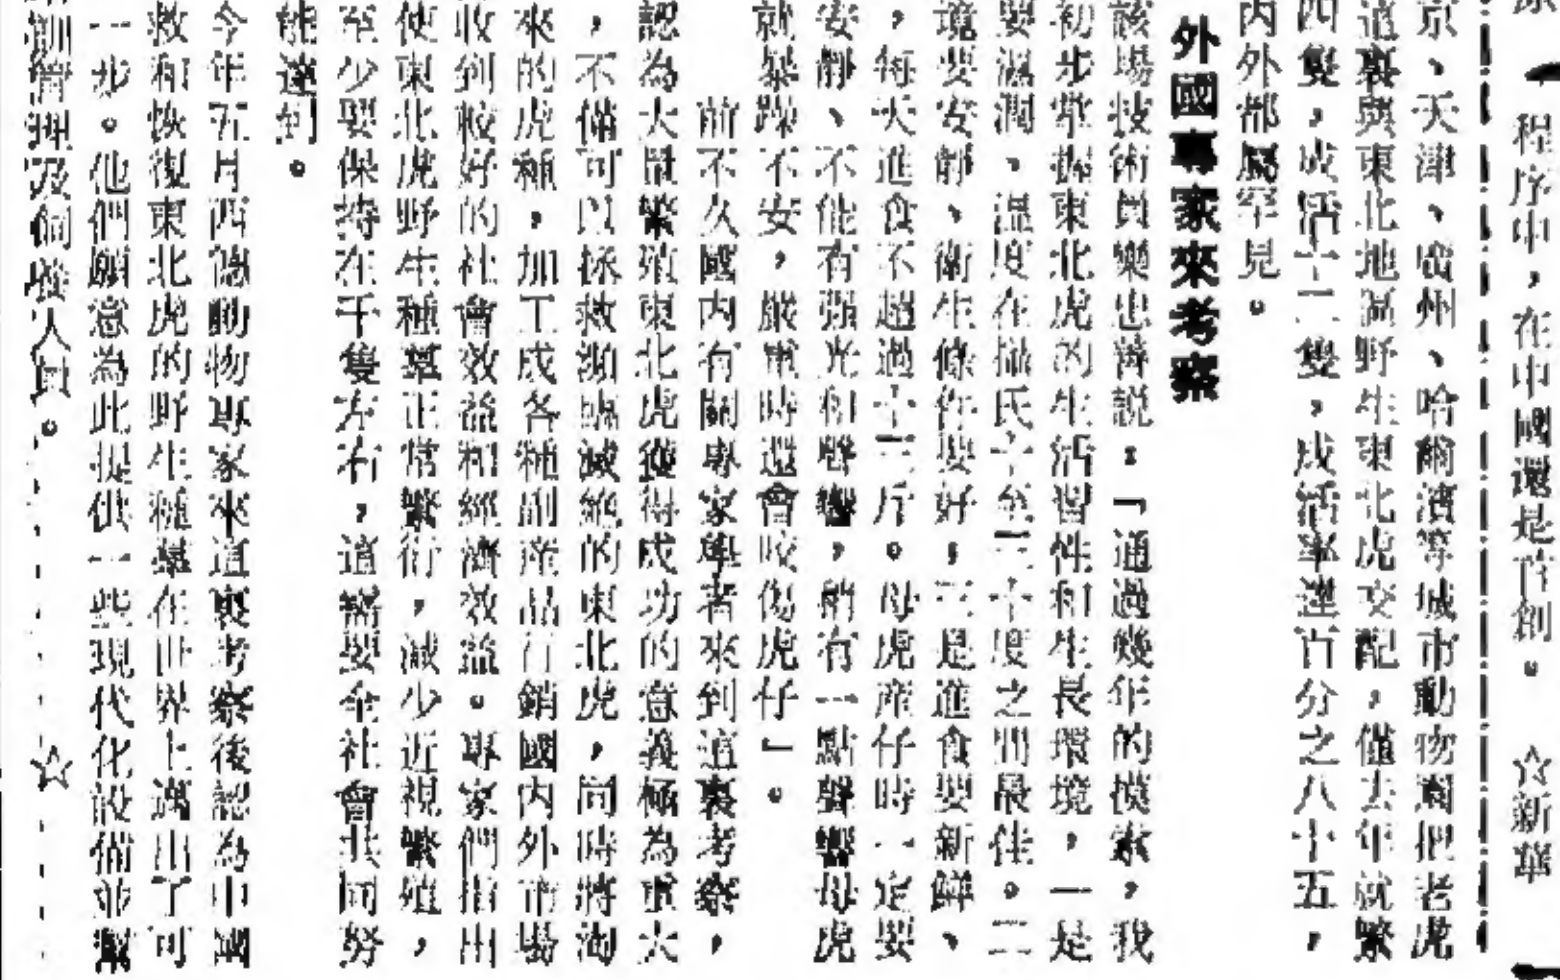 程序中，在中國還是首創。　☆新華
京、天津、廣州、哈爾濱等城市動物園把老虎
這裏與東北地區野生東北虎交配，僅去年就繁
四隻，成活十二隻，成活率達百分之八十五，
內外都屬罕見。
外國專家來考察
該場技術員樂也善説：「通過幾年的摸索，我
初步掌握東北虎的生活習性和生長環境，一是
要濕潤、溫度在攝氏十至二十度之間最佳。二
境要安靜、衛生條件要好；三是進食要新鮮、
，每天進食不超過十二斤。母虎產仔時一定要
安靜、不能有强光和聲響，稍有一點聲響母虎
就暴躁不安，嚴重時還會咬傷虎仔」。
前不久國內有關專家學者來到這裏考察，
認為大量繁殖東北虎獲得成功的意義極為重大
，不僅可以拯救瀕臨滅絶的東北虎，同時將淘
來的虎種，加工成各種副產品行銷國內外市場
收到較好的社會效益和經濟效益。專家們指出
使東北虎野生種羣正常繁衍，減少近視繁殖，
至少要保持在千隻左右，這需要全社會共同努
能達到。
今年五月西德動物專家來這裏考察後認為中國
救和恢復東北虎的野生種羣在世界上邁出了可
一步。他們願意為此提供一些現代化設備並幫
訓管理及飼養人員。　☆